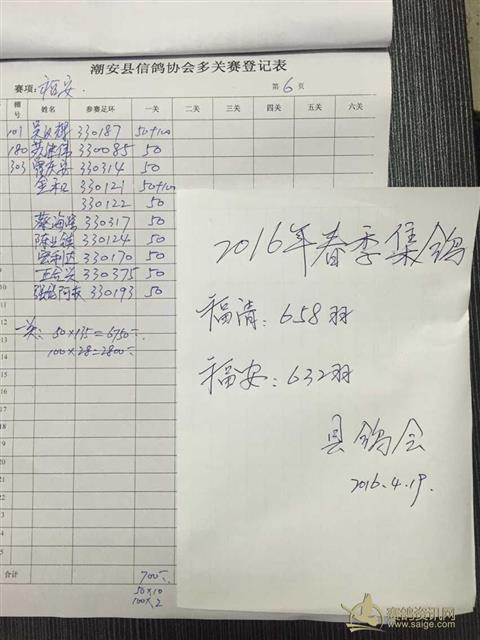 潮安县信鸽协会多关赛登记表
赛项: 福安
第 6 页
棚号 姓名 参赛足环 一关 二关 三关 四关 五关 六关
101 330187 50+100
180 330085 50
303 330314 50
330121 50+100
330122 50
蔡海 330317 50
330124 50
宏利达 330170 50
330375 50
330193 50
一关: 50×135=6750
100×28=2800
合计 700
50×10
100×2
2016年春季集鸽
福清: 658羽
福安: 632羽
县鸽会
2016.4.19.
赛鸽资讯网
www.saige.com